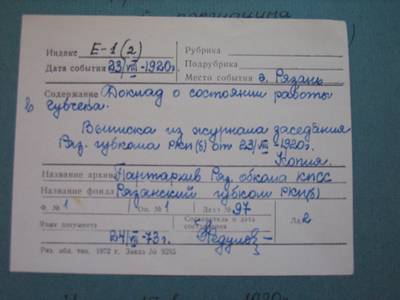 Индекс Е-1(2) Рубрика
Дата события 23/VIII-1920г. Подрубрика
Место события г. Рязань
Содержание Доклад о состоянии работы
в губчека.
Выписка из журнала заседания
Ряз. губкома РКП(б) от 23/VIII-1920г.
Копия.
Название архива Партархив Ряз. обкома КПСС
Название фонда Рязанский губком РКП(б)
Ф. № 1 Оп. № 1 Дело № 97 Лл. 2
Язык документа Составитель и дата составления
24/VII-73г.
Ряз. обл. тип. 1972 г. Заказ № 9245